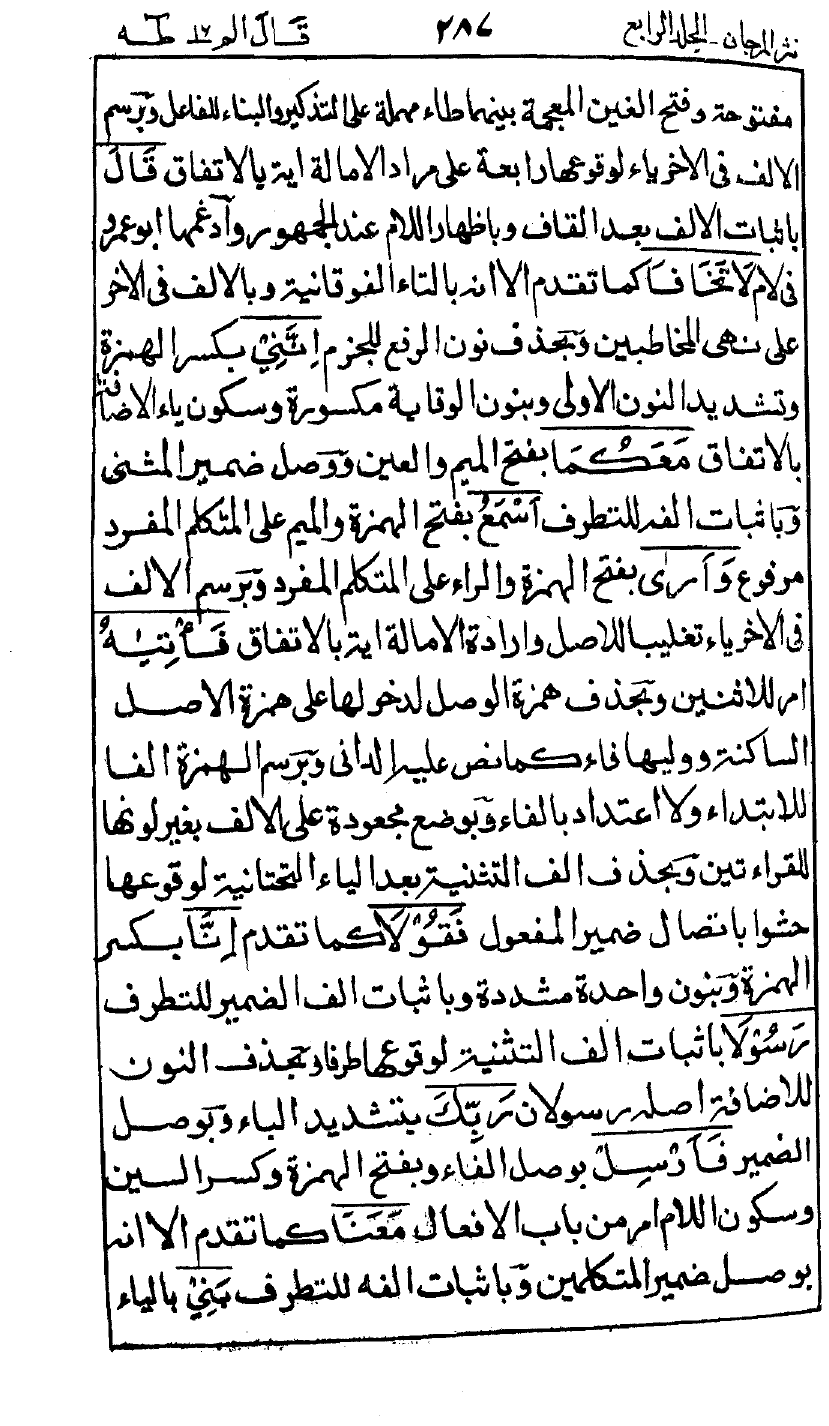 نثر المرجان - الجلد الرابع ٢٨٧ قال الم ١٦ طه
مفتوحة وفتح الغين المعجمة بينهما طاء مهملة على التذكير والبناء للفاعل وبرسم
الالف فى الاخر ياء لوقوعها رابعة على مراد الامالة اية بالاتفاق قَالَ
باثبات الالف بعد القاف وباظهار اللام عند الجمهور وأدغمها ابو عمرو
فى لام لَا تَخَافَا كما تقدم الا انه بالتاء الفوقانية وبالالف فى الاخر
على نهى المخاطبين وبحذف نون الرفع للجزم اِنَّنِىْ بكسر الهمزة
وتشديد النون الاولى وبنون الوقاية مكسورة وسكون ياء الاضافة
بالاتفاق مَعَكُمَا بفتح الميم والعين ووصل ضمير المثنى
وباثبات الفه للتطرف اَسْمَعُ بفتح الهمزة والميم على المتكلم المفرد
مرفوع وَاَرٰى بفتح الهمزة والراء على المتكلم المفرد وبرسم الالف
فى الاخر ياء تغليبا للاصل وارادة الامالة اية بالاتفاق فَأْتِيٰهُ
امر للاثنين وبحذف همزة الوصل لدخولها على همزة الاصل
الساكنة ووليها فاء كما نص عليه الدانى وبرسم الهمزة الفا
للابتداء ولا اعتداد بالفاء وبوضع مجعودة على الالف بغير لونها
للقراءتين وبحذف الف التثنية بعد الياء التحتانية لوقوعها
حشوا باتصال ضمير المفعول فَقُوْلَا كما تقدم اِنَّا بكسر
الهمزة وبنون واحدة مشددة وباثبات الف الضمير للتطرف
رَسُوْلَا باثبات الف التثنية لوقوعها طرفا وبحذف النون
للاضافة اصله رسولان رَبِّكَ بتشديد الباء وبوصل
الضمير فَاَرْسِلْ بوصل الفاء وبفتح الهمزة وكسر السين
وسكون اللام امر من باب الافعال مَعَنَا كما تقدم الا انه
بوصل ضمير المتكلمين وباثبات الفه للتطرف بَنِىْ بالياء